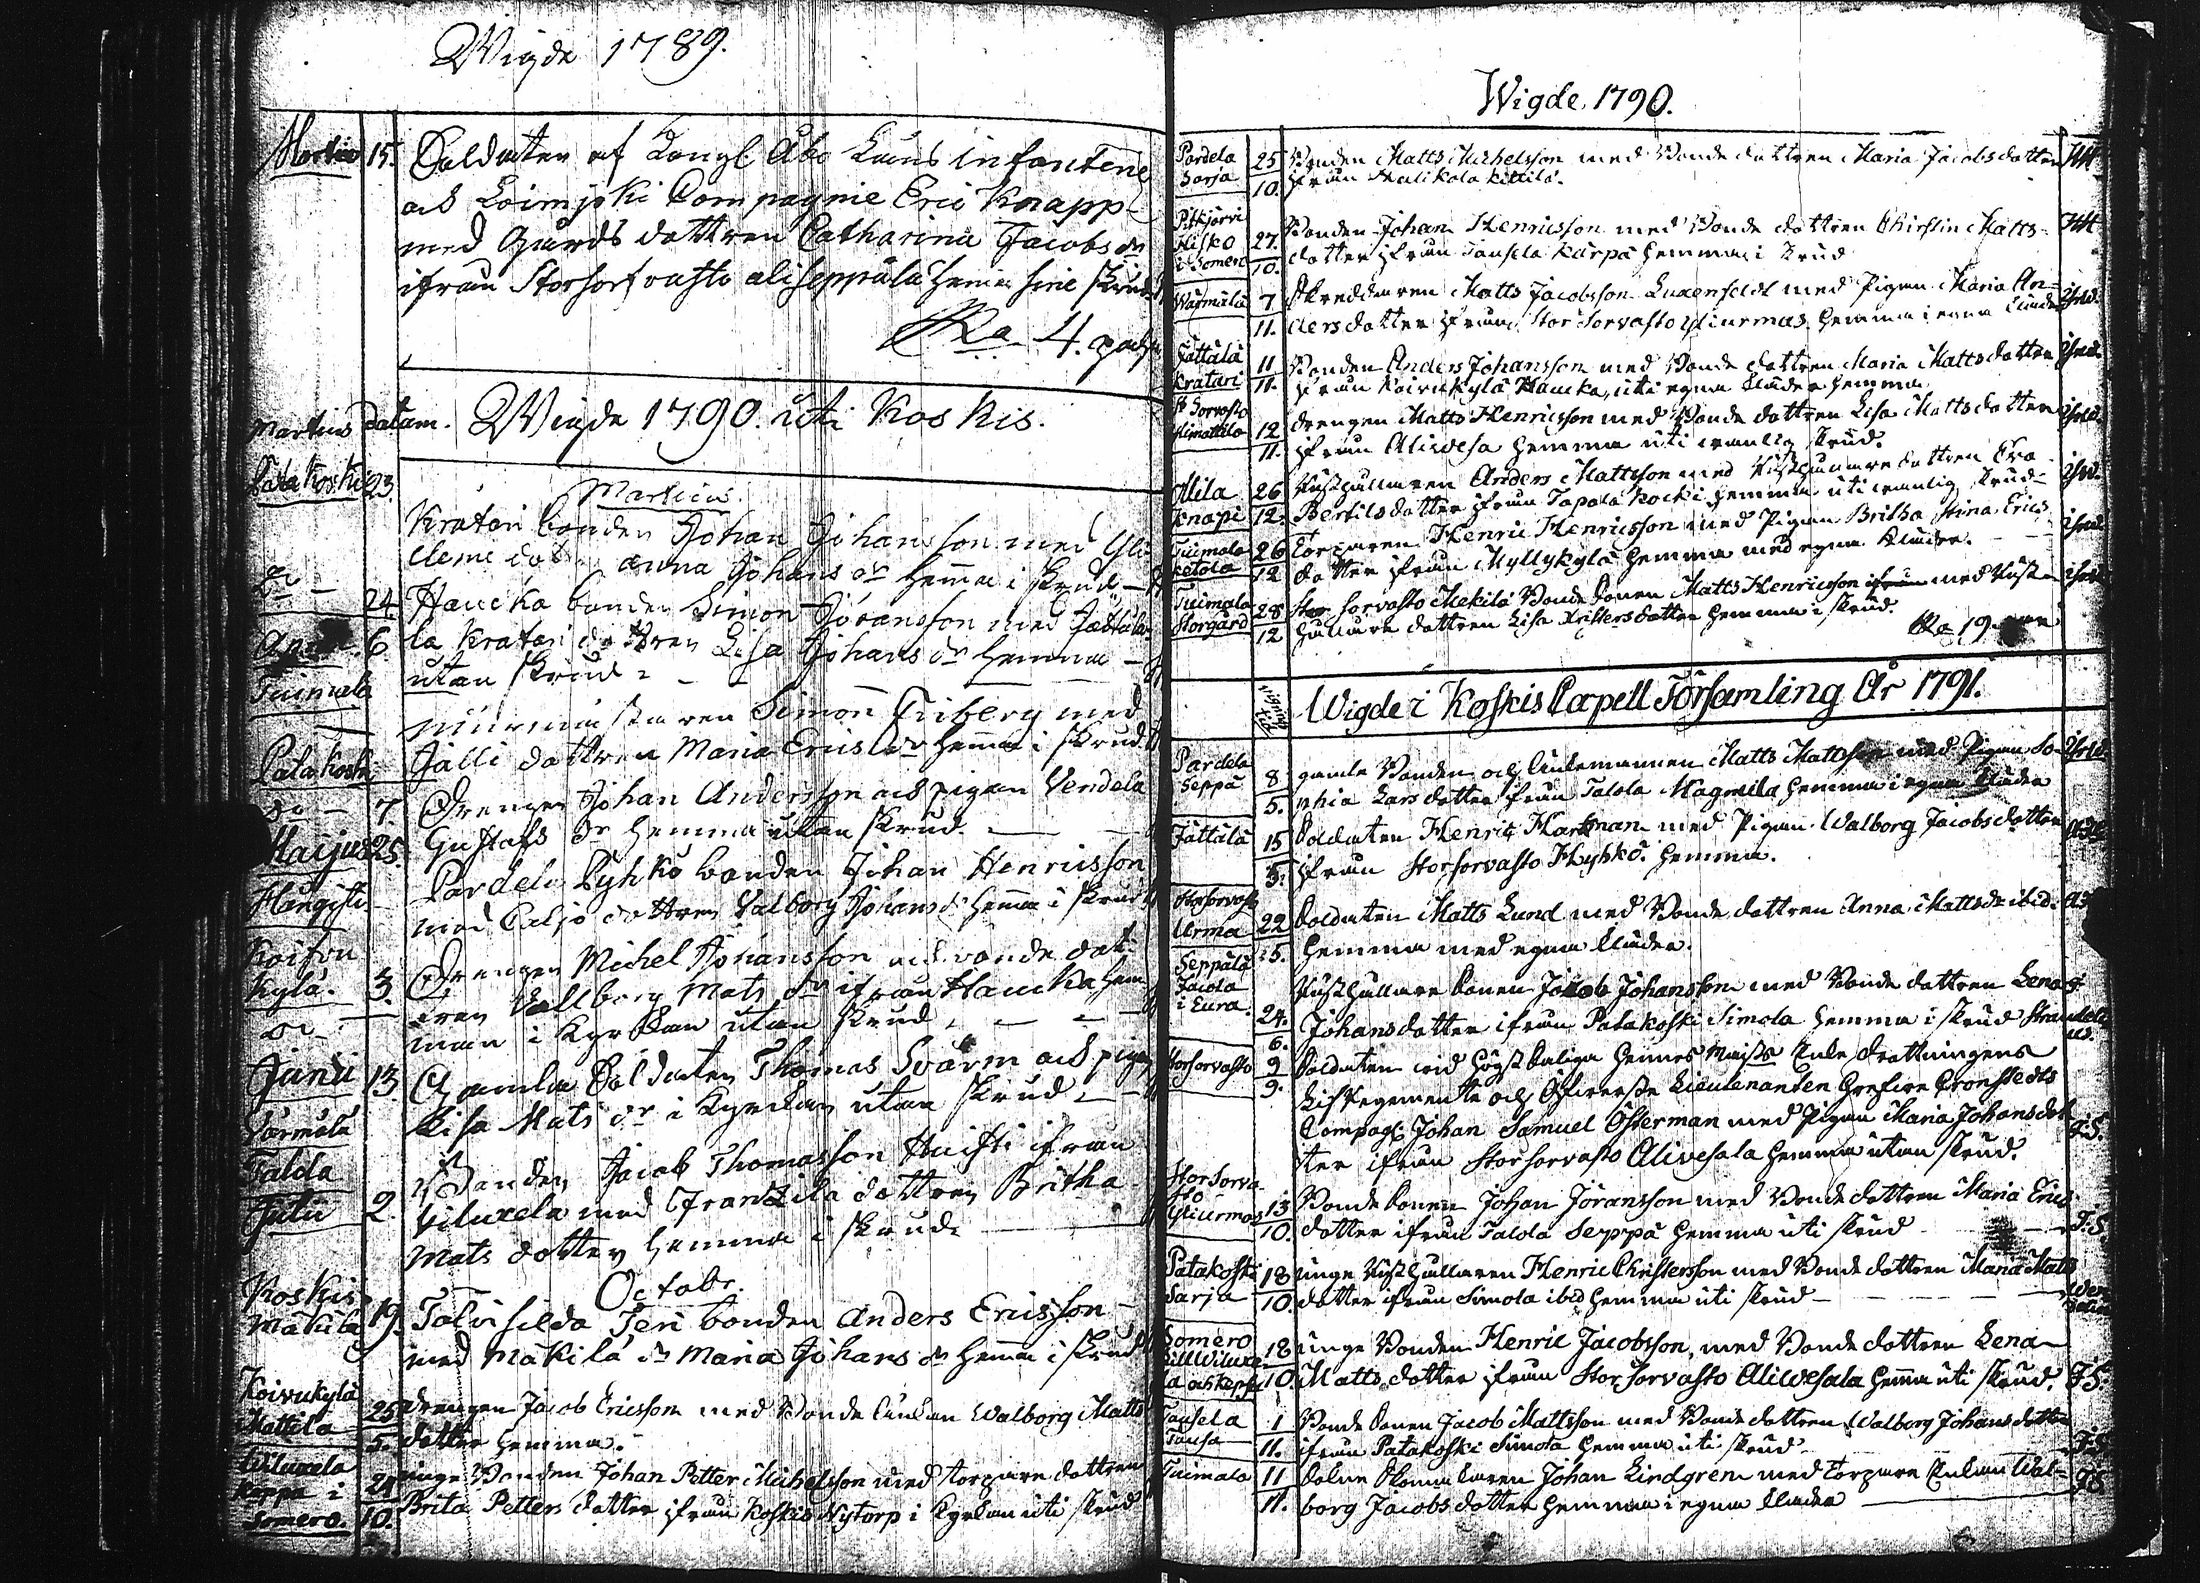 Wigde 1789.
Martius 15. Soldaten af Kongl Åbo Läns infanterie
och Loimjoki Compagnie Eric Knapp
med Gårds dottren Catharina Jacobs dr
ifrån Storsorfvasto aliseppälä hema i sine skrud
Sa 4. par
Martius datum. Wigde 1790. uti Koskis.
Martius.
Patakoski 23. Kratari bonden Johan Johansson med Yli
cleme dott. Anna Johans dr hema i skrud
Do 24 Haucka bonden Simon Jöransson med Jättälä
la Kratari dottren Lisa Johans dr hemma
utan skrud
April 6
Tuimala
Simon Friberg med
Jälli dottren Maria Erics dr hema i skrud
Patakoski
do 7. Drengen Johan Andersson och pigan Vendela
Gustafs dr hemma utan skrud
Maijus 25. Pardela Pyhkö bonden Johan Henricsson
Hangisti
med dottren Valborg Johans dr hema i skrud
Koifvu
kylä. 3. Drengen Michel Johansson och bonde dot
tren Vallborg Mats dr ifrån Haucka hem
man i Kyrckan utan skrud
do
Junii 13. Gamla Soldaten Thomas Svärm och pigan
Lisa Mats dr i Kyrckan utan skrud
Värmälä
Talola
Julii 2. Bonden Jacob Thomasson Huisti ifrån
Viluxela med Frantzila dottren Britha
Mats dotter hemma i skrud
Octobr.
Koskis
Mattila 19. Talvisilda Teri bonden Anders Ericsson
med Mäkilä dr Maria Johans dr hema i skrud
Koivukylä
Mattila 25/5. drengen Jacob Ericsson med Bonde Enkan Walborg Matts
dotter hemma.
Wiluxela
Keppo i
Somero. 24/10. unge Bonden Johan Petter Michelsson med torpare dottren
Brita Petters dotter ifrån Koskis Nytorp i Kyrkan uti skrud
Wigde 1790.
Pardela
Sarja 25/10. Bonden Matts Michelsson med Bonde dottren Maria Jacobs dotter HH
ifrån Halikola Kittilä.
Pitkjärvi
Kisko
i Somero 27/10. Bonden Johan Henricsson med Bonde dottren Christin Matts HH
dotter ifrån Tausela Kärpä hemma i skrud
Wärmälä 7/11. Skreddaren Matts Jacobsson Luxenfeldt med Pigan Maria An-
ders dotter ifrån Stor Sorvasto Yliurmas hemma i egna kläder
Jättälä
Kratari 11/11. Bonden Anders Johansson med Bonde dottren Maria Matts dotter
ifrån Koivukylä Haucka, uti egna kläder hemma
St Sorvasto
Ylimattila 12/11. drengen Matts Henricsson med Bonde dottren Lisa Matts dotter
ifrån Alivesa hemma uti vanlig skrud.
Mila
Knapi 26/12. Husthållaren Anders Mattsson med Husthållare dottren Eva
Bertils dotter ifrån Tapala Kocki hemma uti vanlig skrud
Tuimala
Ketola 26/12 Torparen Henric Henricsson med Pigan Britha Stina Erics
dotter ifrån Myllykylä hemma med egna kläder.
Tuimala
Storgård 28/12 Stor Sorvasto Mekilä Bonde sonen Matts Henricsson med Hust-
hållare dottren Lisa Kristers dotter hemma i skrud.
Sa 19. par
Wigde i Koskis Capell Församling År 1791.
Pardela
Seppä 8/5. gamla Bonden och Enkemannen Matts Mattsson med Pigan So-
phia Lars dotter ifrån Talola Magnila hemma i egna kläder
Jättälä 15/5. Soldaten Henric Hartman med Pigan Walborg Jacobs dotter
ifrån Storsorvasto Hyhkö. hemma.
Storsorvasto
Urma 22/5. Soldaten Matts Lund med Bonde dottren Anna Matts dr ibid.
hemma med egna kläder.
Seppälä
Jacola
i Eura. 24/6. Husthållare sonen Jacob Johansson med Bonde dottren Lena
Johans dotter ifrån Patakoski Simola hemma i skrud
Storsorvasto 9/9. Soldaten vid Högst Salige Hennes Maijts Enke Drottningens
Lif Regemente och Öfverste Lieutenanten Grefve Cronstedts
Compagi Johan Samuel Österman med Pigan Maria Johans dot
ter ifrån Storsorvasto Alivesala hemma utan skrud.
Stor Sorva
sto
Yliurmas 13/10. Bonde sonen Johan Jöransson med Bonde dottren Maria Erics
dotter ifrån Talola Seppä hemma uti skrud J.S.
Patakoski
Sarja 18/10. unge Husthållaren Henric Christersson med Bonde dottren Maria Matts
dotter ifrån Simola ibid hemma uti skrud
Somero 18/10. unge Bonden Henric Jacobsson, med Bonde dottren Lena
Matts dotter ifrån Stor Sorvasto Alivesala hema uti skrud. J.S.
Tausela
Tausa 1/11. Bonde sonen Jacob Mattsson med Bonde dottren Walborg Johans dotter
ifrån Patakoski Simola hemma uti skrud
Tuimala 11/11. Johan Lindgren med Torpare Enkan Wal-
borg Jacobs dotter hemma i egna kläder